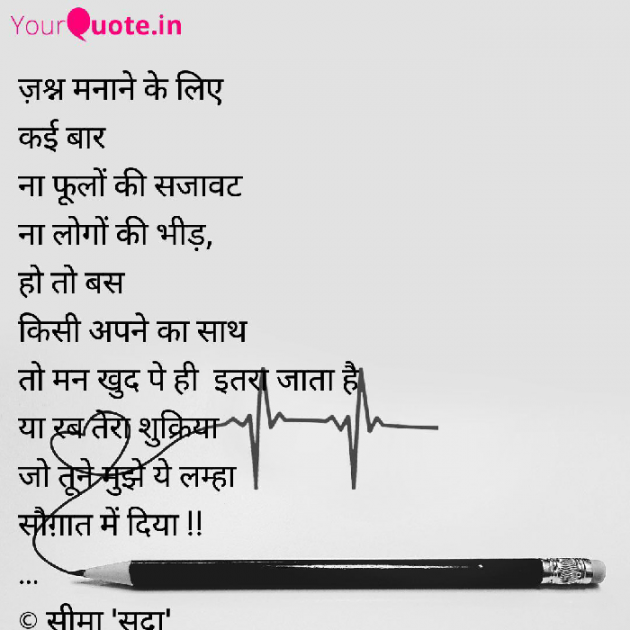 YourQuote.in
ज़श्न मनाने के लिए
कई बार
ना फूलों की सजावट
ना लोगों की भीड़,
हो तो बस
किसी अपने का साथ
तो मन खुद पे ही इतरा जाता है
या रब तेरा शुक्रिया
जो तूने मुझे ये लम्हा
सौग़ात में दिया !!
...
© सीमा 'सदा'